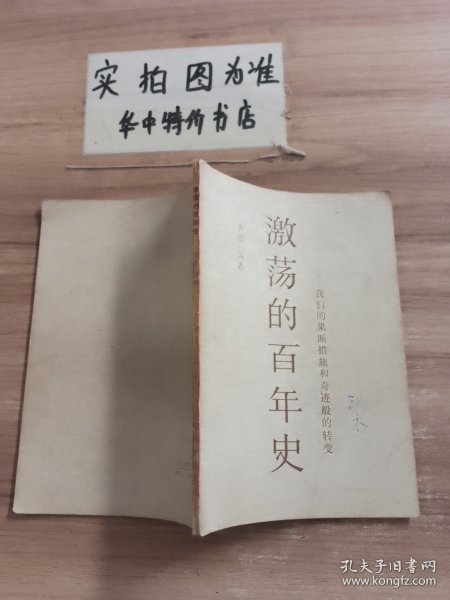 实拍图为准
华中特价书店
激荡的百年史
——我们的果断措施和奇迹般的转变
吉田 茂著
激荡的百年史
孔夫子旧书网
www.kongfz.com